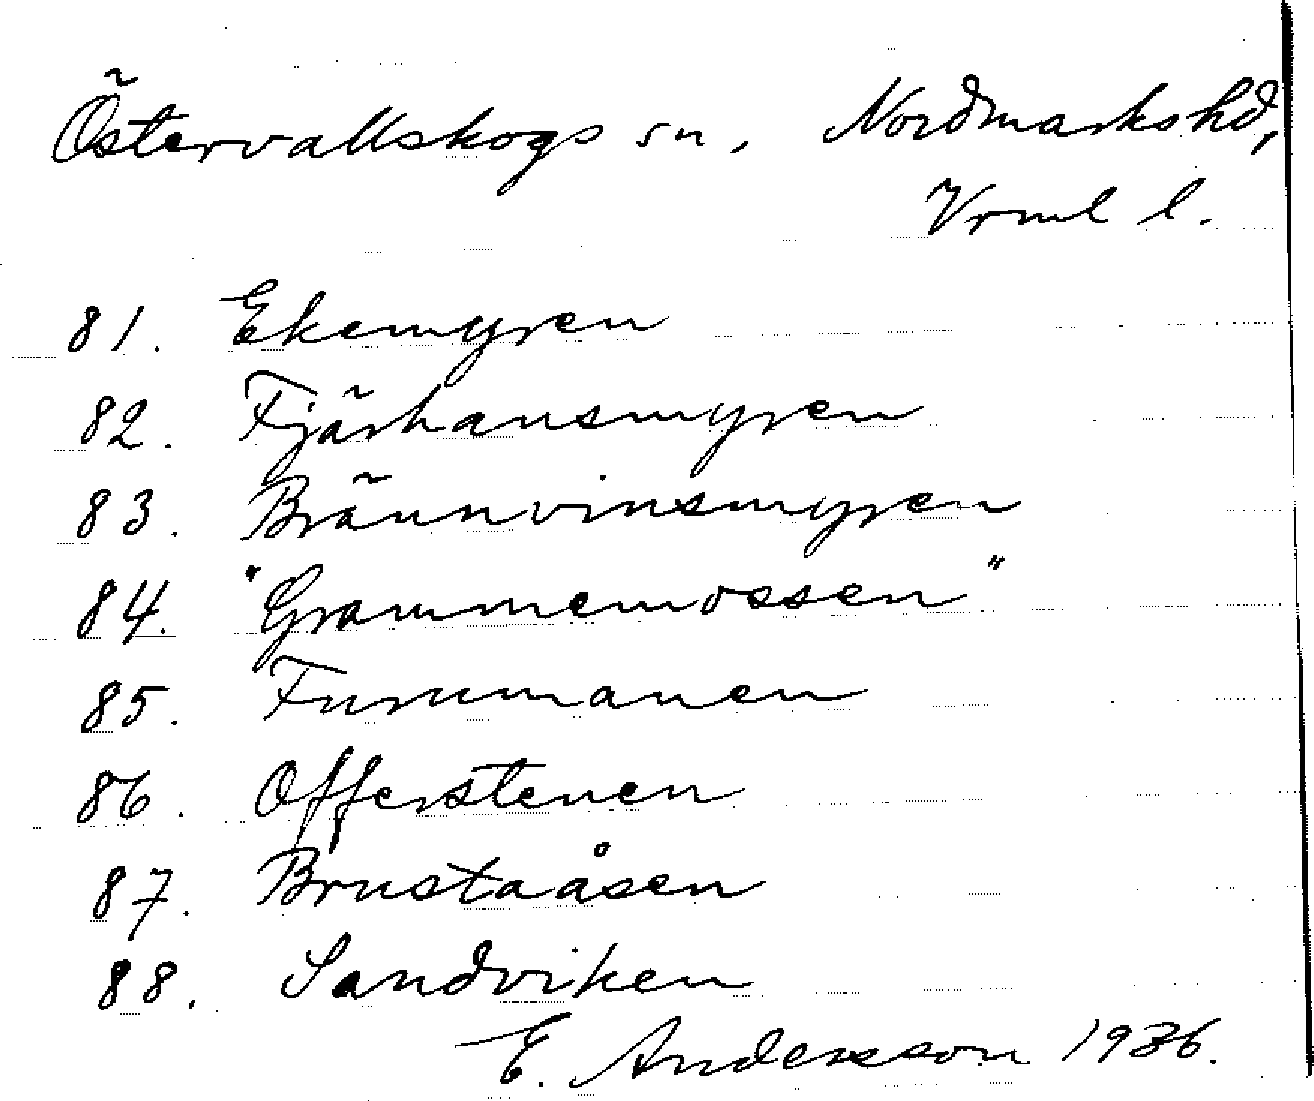 Östervallskogs sn, Nordmarkshd,
Vrml l.
81. Ekemyren
82. Fjärhansmyren
83. Brännvinsmyren
84. "Grammemossen"
85. Furumanen
86. Offerstenen
87. Brustaåsen
88. Sandviken
E. Andersson 1936.